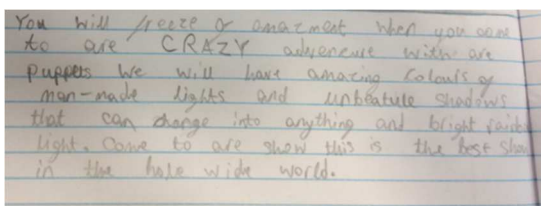 You will freeze of amazment when you come
to are CRAZY advencure with are
puppets we will have amazing Colours of
man-made lights and unbeatule shadows
that can change into anything and bright
light. Come to are show this is the best show
in the hole wide world.